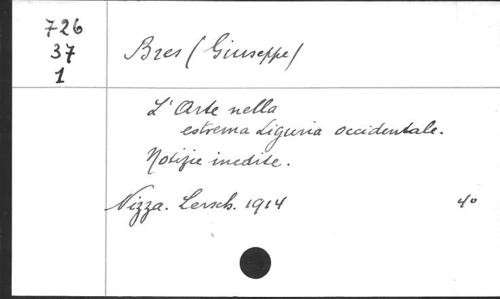 726
37
1
Bres (Giuseppe)
L'Arte nella
estrema Liguria occidentale.
Notizie inedite.
Nizza. Lersch. 1914 4º